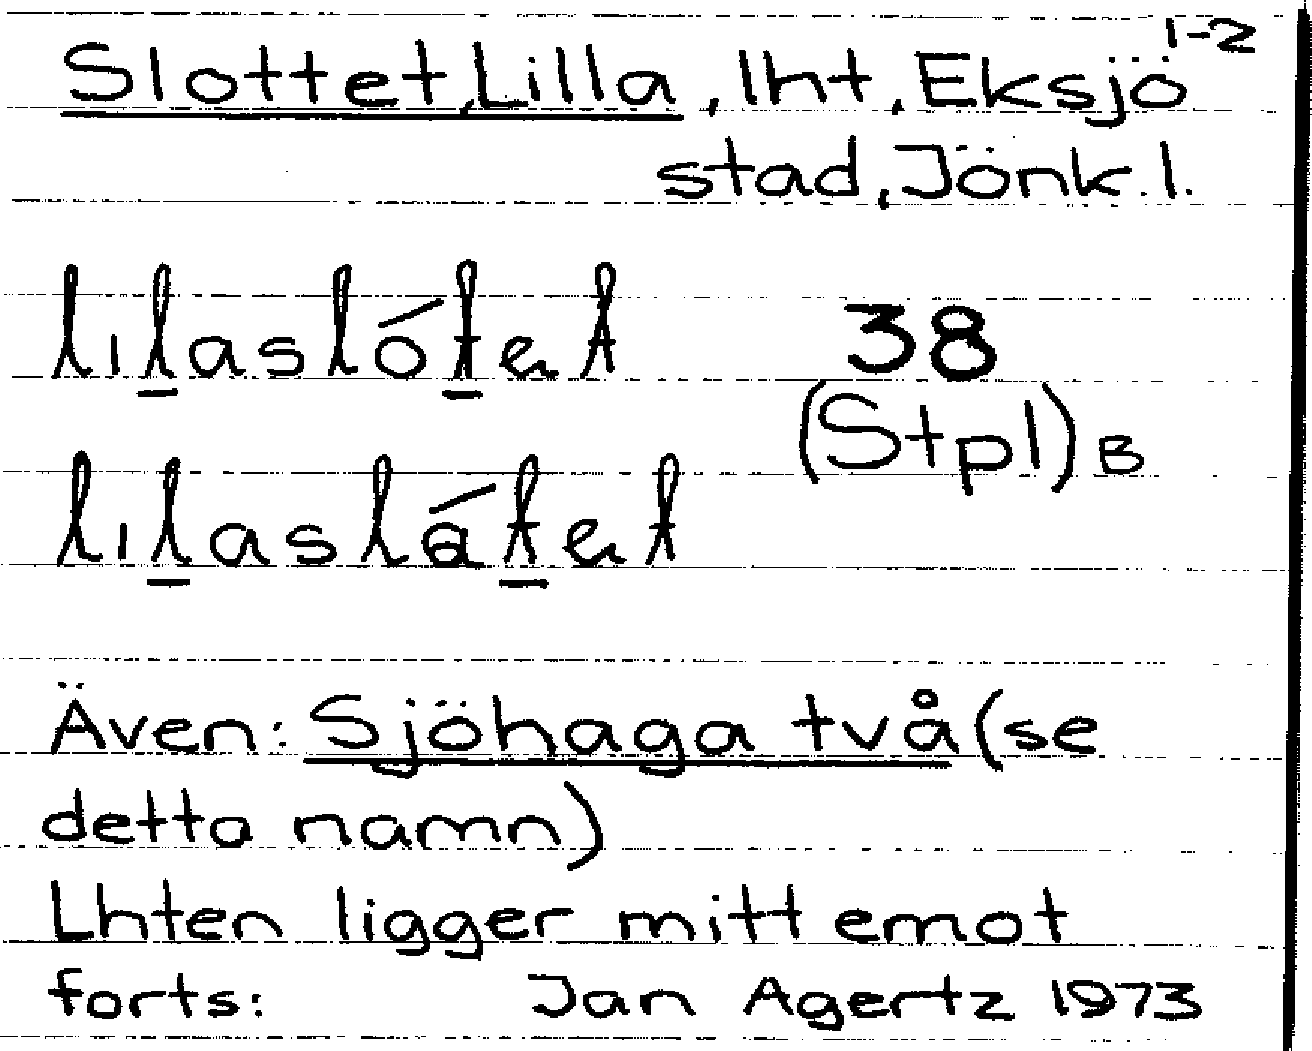 Slottet, Lilla, lht, Eksjö 1-2
stad, Jönk. l.
lilaslótet 38
(Stpl) B
lilaslátet
Även: Sjöhaga två (se
detta namn)
Lhten ligger mitt emot
forts: Jan Agertz 1973